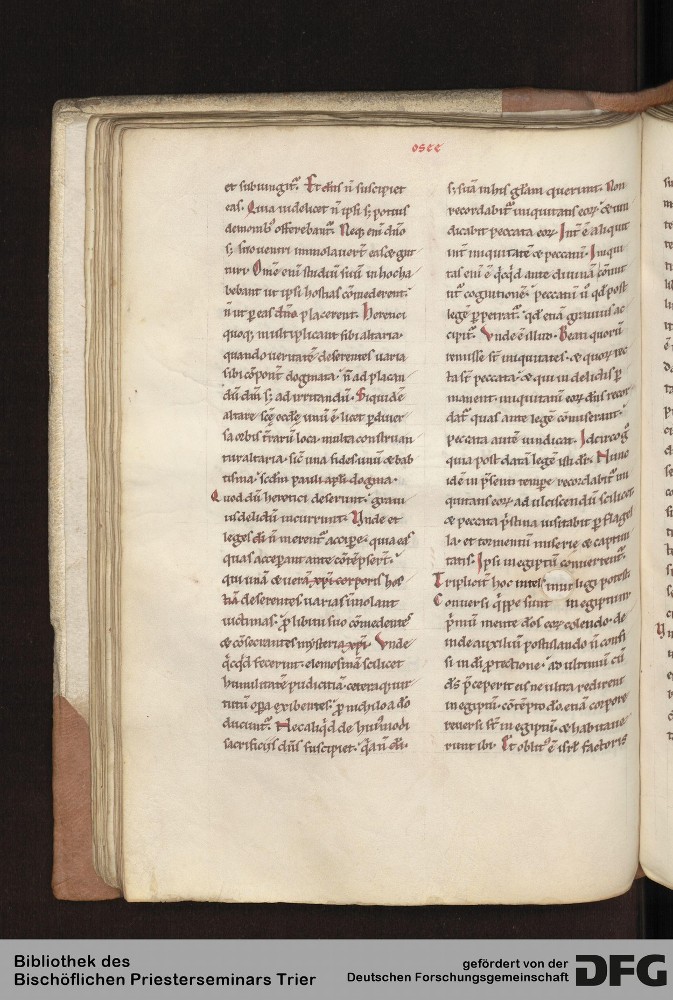 osee
et subiungit᷑. Et dn̄s n̄ suscipiet
eas. Quia uidelicet n̄ ipsi s; potius
demonib; offerebant᷑. Neq; eni᷑ dn̄o
s; suo uentri immolauer̄t eas ⁊
Om̄e eni᷑ studiū suū in hoc ha
bebant ut ipsi hostias cōmederent᷑.
n̄ ut ꝑ eas dn̄o placerent. Heretici
quoq; multiplicant sibi altaria.
quando ueritatē deserentes uaria
sibi cōponūt dogmata. n̄ ad placan
dū dm̄ s; ad irritandū. Siquidē
altare scē eccłe unū ē. licet ꝑ diuer
sa orbis t̄rarū loca. multa construan
tur altaria. sic̄ una fides unū ⁊ bab
tisma. scd̄m pauli apłi dogma.
Quod dū heretici deserunt. graui
us delictū incurrunt. Vnde et
leges di᷑ n̄ merent᷑ accipe. quia eas
quas acceperant ante cōtēpser̄t.
qui unā ⁊ uerā xp̄i corporis hos
tiā deserentes uarias īmolant
uictimas. ꝓ libitu suo cōmedentes
⁊ cōsecrantes mysteria xp̄i. Vnde
q̄cq̄d fecerint. elemosinā scilicet
humilitatē pudicitiā. ceteraq; uir
tutū oꝑa exhibentes. ꝓ nichilo a dō
ducunt᷑. Nec aliq̄d de hui᷑modi
sacrificiis dn̄s suscipiet. q̄a n̄ di᷑
s; suā in his glam̄ querunt. Non
recordabit᷑ iniquitatis eoꝝ. ⁊ uin
dicabit peccata eoꝝ. Int̄ ē aliquit
int̄ iniquitatē ⁊ peccatū. Iniqui
tas eni᷑ ē q̄cq̄d ante diuinā cōmit
tit᷑ cognitionē. peccatū ū qd̄ post
legē ꝑpetrat᷑. qd̄ etiā grauius ac
cipit᷑. Vnde ē illud. Beati quorū
remisse st̄ iniquitates. ⁊ quoꝝ tec
ta st̄ peccata. ⁊ qui in delictis ꝑ
manent. iniquitatū eoꝝ dn̄s recor
dat᷑ quas ante legē cōmiserant.
peccata autē uindicat. Idcirco g̊
quia post datā legē
idē in p̄senti tempe recordabit᷑ ini
quitatis eoꝝ ad ulciscendū scilicet
⁊ peccata p̄stina uisitabit ꝑ flagel
la. et tormentū miserie ⁊ captiui
tatis. Ipsi in egiptū conuertent᷑.
Tripliciter hoc intel legi potest.
Conuersi q̄ppe sunt in egiptum
p̄mū mente dos̄ eoꝝ colendo. de
inde auxiliū postulando n̄ confi
si in di᷑ ꝓtectione. ad ultimū cū
ds̄ p̄ceperit eis ne ultra redirent
in egiptū. cōtēpto dō etiā corpore
reuersi st̄ in egiptū. ⁊ habitaue
runt ibi. Et oblitꝰ ē isrł factoris
Bibliothek des
Bischöflichen Priesterseminars Trier
gefördert von der
Deutschen Forschungsgemeinschaft
DFG